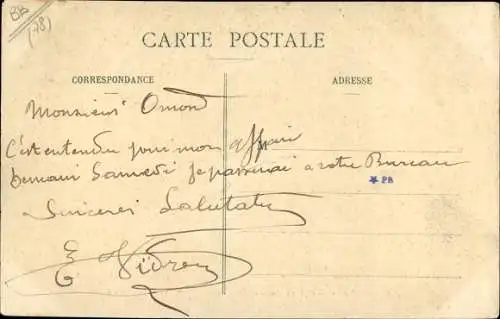 BB
(78)
CARTE POSTALE
CORRESPONDANCE
ADRESSE
Monsieur Omont
C'est entendu pour mon affaire
Demain Samedi je passerai a votre Bureau
PB
Sinceres Salutations
E